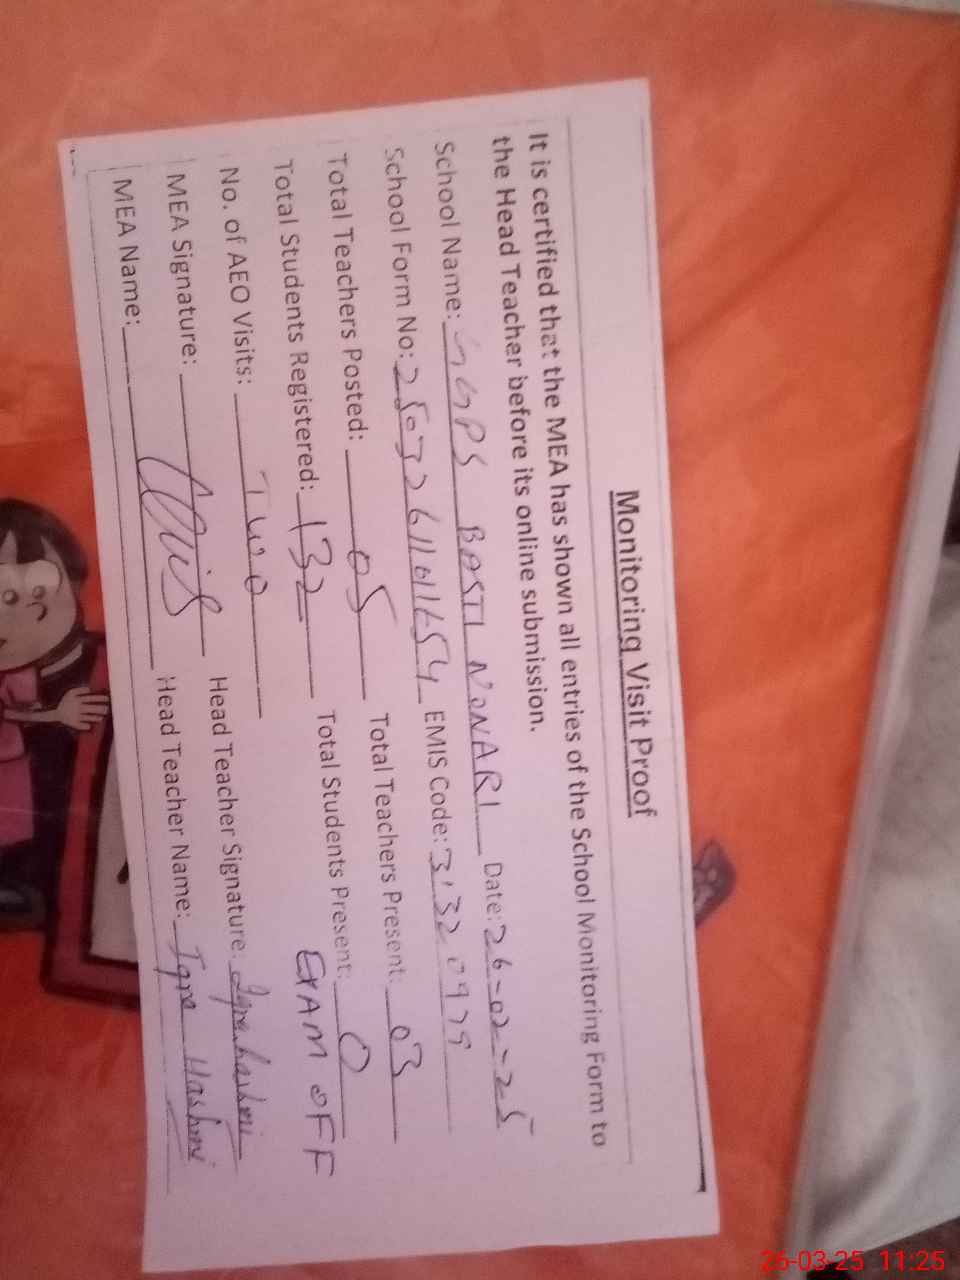 Monitoring Visit Proof
It is certified that the MEA has shown all entries of the School Monitoring Form to
the Head Teacher before its online submission.
School Name: GGPS BASTI NONARI Date: 26-02-25
School Form No: EMIS Code: 31320979
Total Teachers Posted: 05 Total Teachers Present: 03
Total Students Registered: 132 Total Students Present: 0
EXAM OFF
No. of AEO Visits: Two
MEA Signature: Head Teacher Signature: Iqra hashmi
MEA Name: Head Teacher Name: Iqra Hashmi
26-03-25 11:25